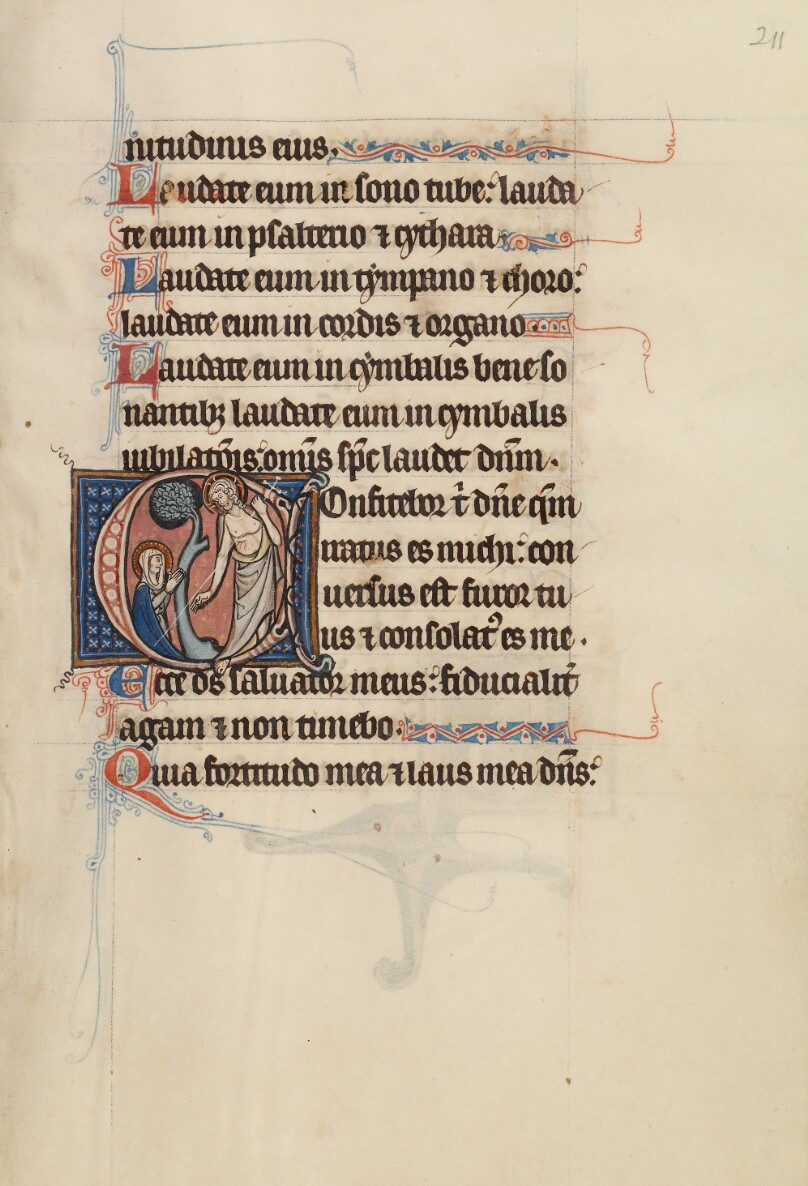 211
nitudinis eius.
Laudate eum in sono tube: lauda
te eum in psalterio ⁊ cythara
Laudate eum in tympano ⁊ choro:
laudate eum in cordis ⁊ organo
Laudate eum in cymbalis bene so
nantibꝫ laudate eum in cymbalis
iubilatõis: omĩs sp̃c laudet dñm.
Onfitebor t̃ dñe qm̃
iratus es michi: con
uersus est furor tu
us ⁊ consolat᷒ es me.
Ecce ds̃ saluator meus: fiducialit̃
agam ⁊ non timebo.
Quia fortitudo mea ⁊ laus mea dñs: